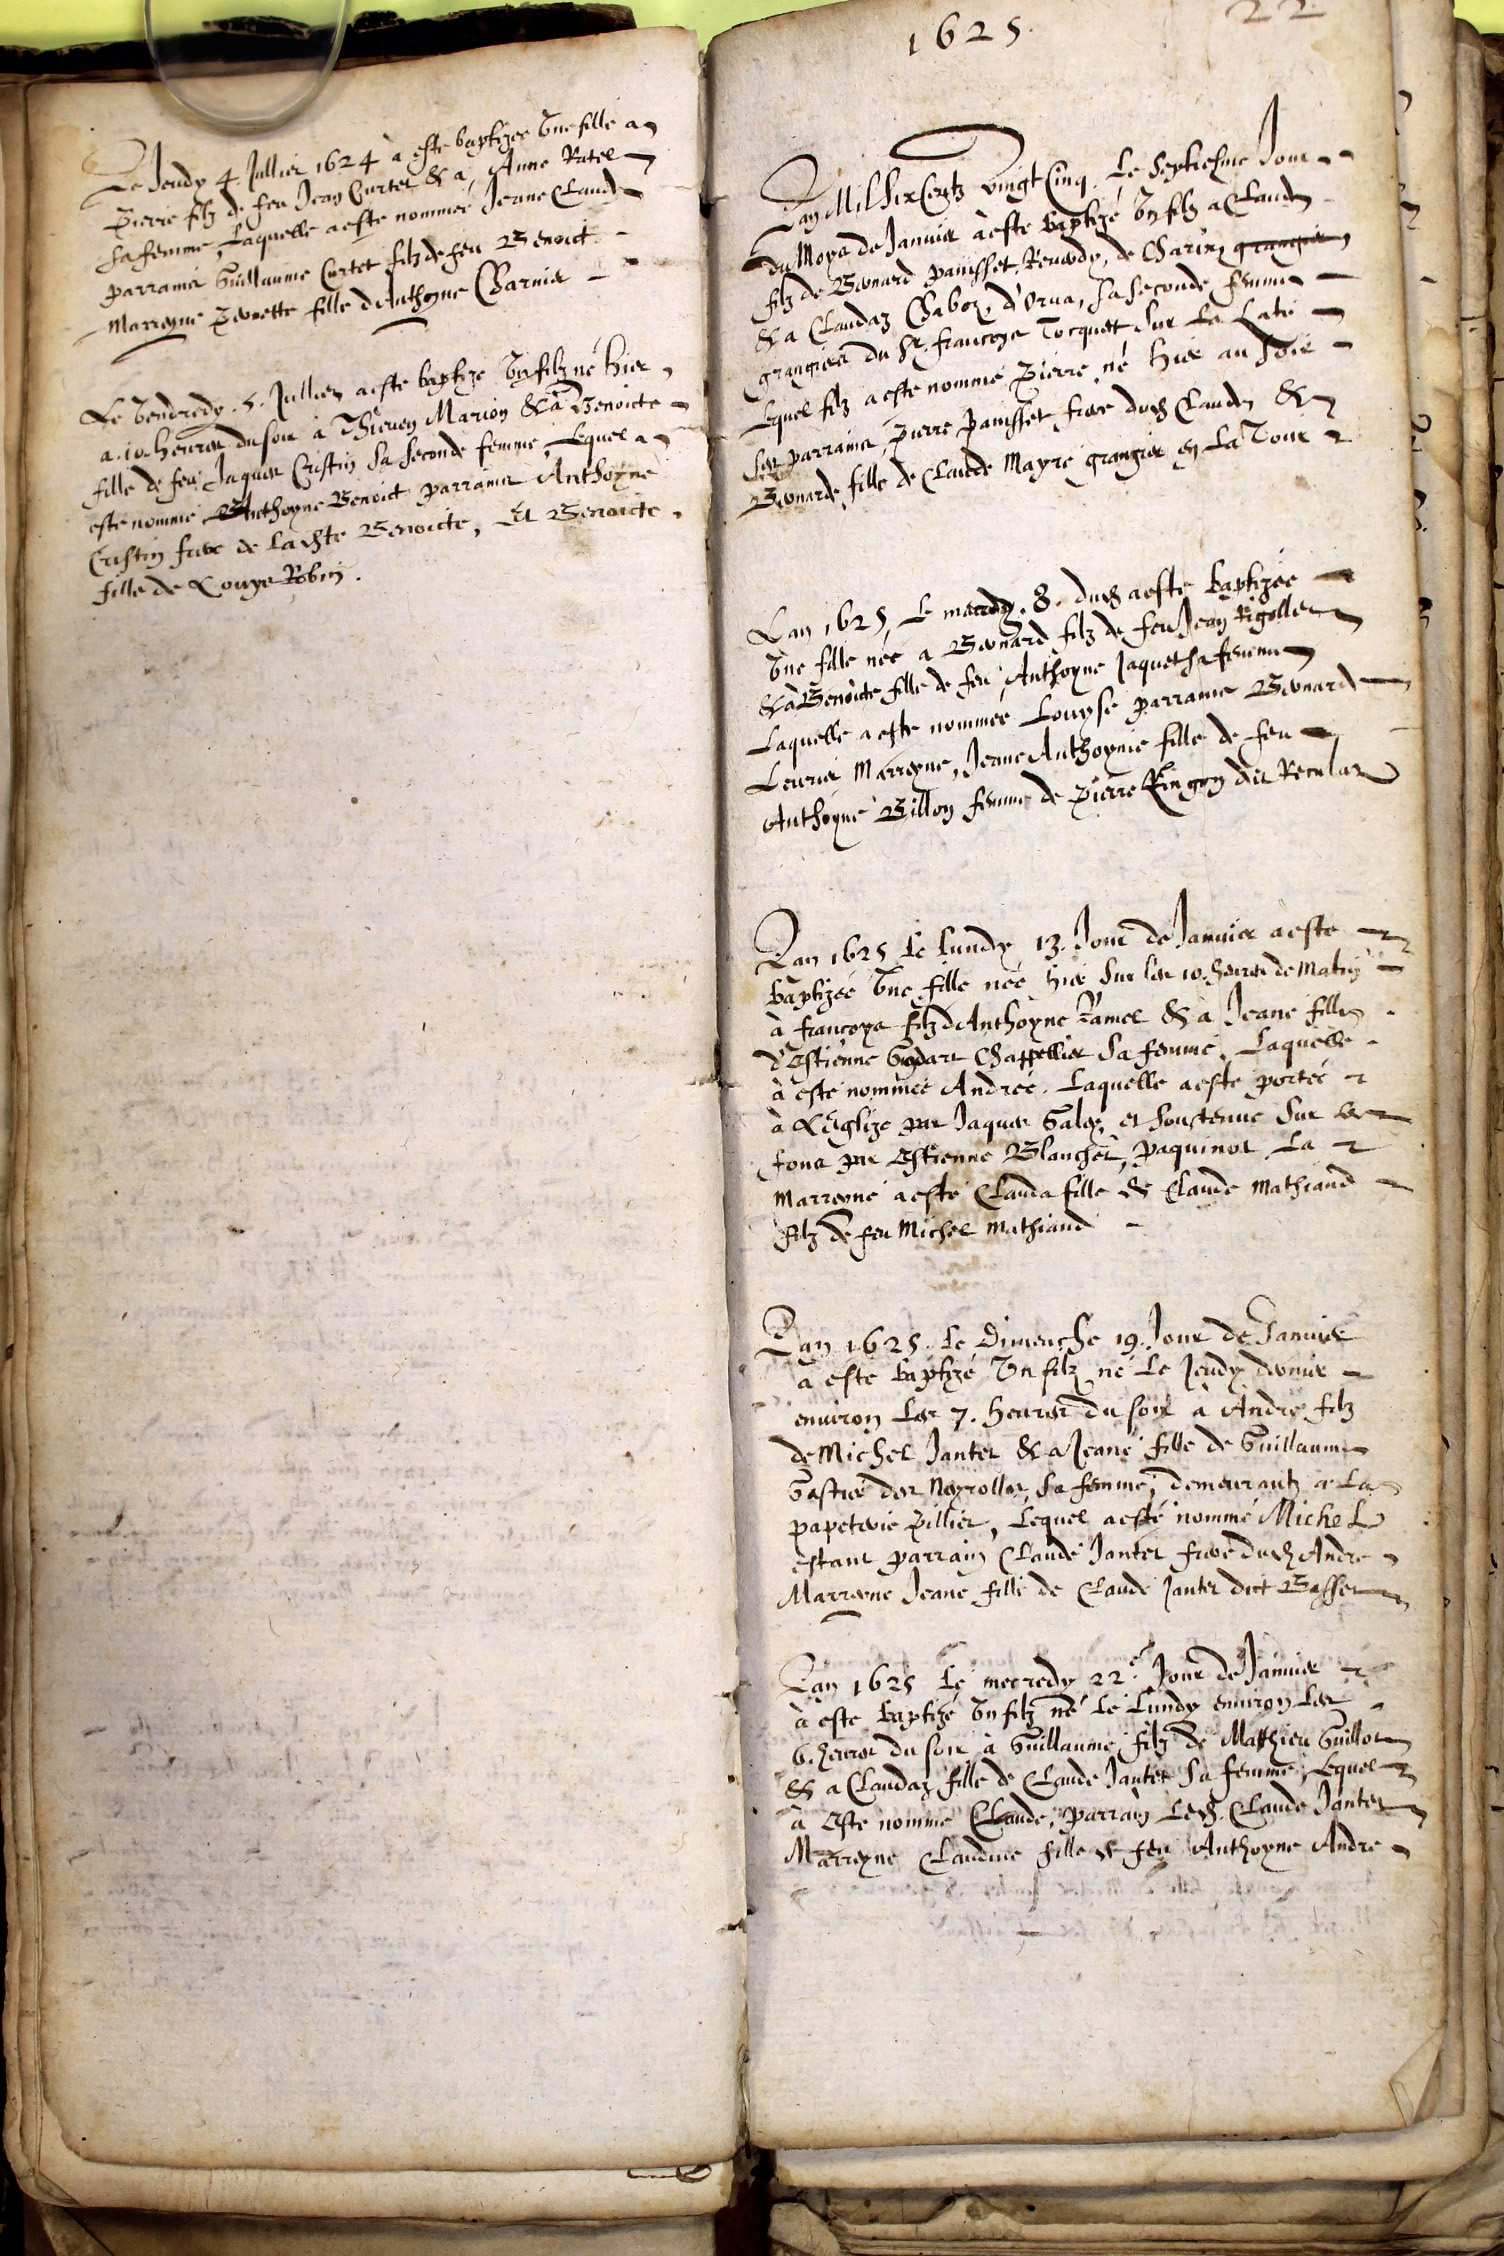 Le Jeudy 4 Jullier 1624 à esté baptizée Une fille a
Pierre filz de feu Jean Curtet & a Anne Ratel
sa femme, Laquelle a esté nommée Jeane Claud
parrains Guillaume Curtet filz de feu Benoict
Marreyne Pernette fille d'Anthoyne Charnier
Le Vendredy 5. Jullier a esté baptizé Un filz né hier
a 10. heures du soir à Thieven Marion & à Benoicte
fille de feu Jaques Cristin sa seconde femme, Lequel a
esté nommé Anthoyne Benoict parrains Anthoyne
Cristin frere de ladite Benoicte, Et Benoicte
fille de Louys Robin.
1625. 22
L'an Mil Six Centz vingt Cinq. Le Septiesme Jour
du Moys de Janvier à esté baptizé Un filz a Claude
filz de Bernard Panisset, Reverdy, de Charin grangier
& a Claudaz Chaboz, d'Orva, sa seconde femme
grangiers du Sr. francoys Tocquet sur La Laté
Lequel filz a esté nommé Pierre, né hier au soir
Ses parrains Pierre Panisset frere dud Claude &
Bernarde fille de Claude Mayre grangier en La Tour
L'an 1625, Le mecredy. 8. dud a esté baptizée
Une fille née a Bernard filz de feu Jean Rigollet
& à Benoicte fille de feu Anthoyne Jaquet sa femme
Laquelle a esté nommée Louyse parrains Bernard
Leurier Marreyne, Jeane Anthoynie fille de feu
Anthoyne Billon femme de Pierre Ringon dit Reculaz
L'an 1625 Le Lundy 13. Jour de Janvier a esté
baptizée Une fille née hier sur les 10. heures de Matin
à francoys filz d'Anthoyne Ramel & à Jeane fille
d'Estienne Godart Chappellier sa femme, Laquelle
à esté nommée Andrée. Laquelle a esté portée
à L'Eglize par Jaques Galez, et soustenue sur les
fons par Estienne Blanchet, Paquinot La
Marreyne a esté Clauda fille de Claude Mathiaud
filz de feu Michel Mathiaud
L'an 1625. Le Dimenche 19. Jour de Janvier
à esté baptizé Un filz né Le Jeudy dernier
environ Les 7. heures du soir à André filz
de Michel Jantet & a Jeane fille de Guillaume
Gastier des Neyrolles, sa femme, demeurantz a La
papeterie Pillier, Lequel a esté nommé Michel
estant parrain Claude Jantet frere dud Andre
Marreyne Jeane fille de Claude Jantet dict Basset
L'an 1625 Le mecredy 22e. Jour de Janvier
à esté baptizé Un filz né Le Lundy environ Les
6. heures du soir à Guillaume filz de Matthieu Guillot
& a Claudaz fille de Claude Jantet sa femme, Lequel
à Esté nommé Claude, parrain Led. Claude Jantet
Marreyne Claudine fille de feu Anthoyne Andre